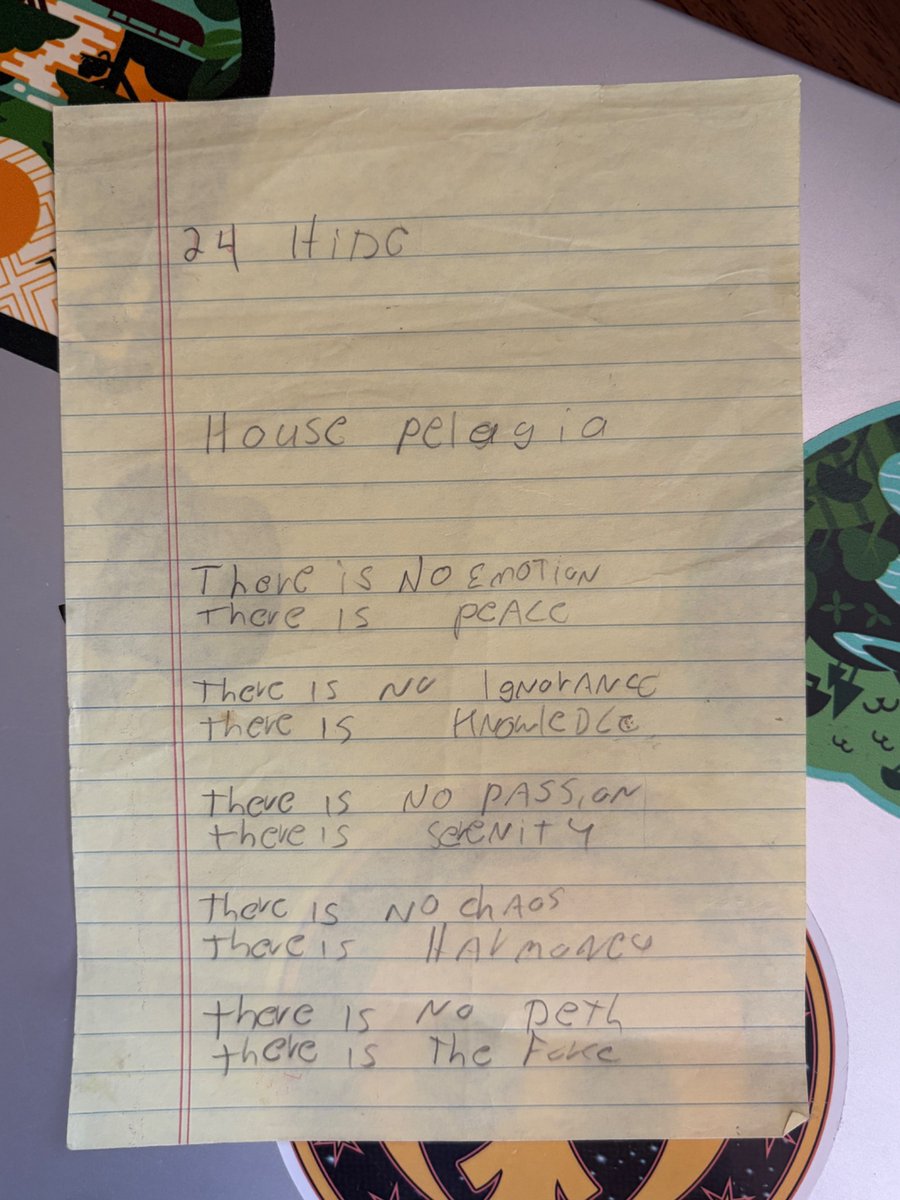 24 HiDC
House pelagia
There is NO EmOTiON
There is peACe
There is NO IgNOrANCE
there is KNOwleDge
there is NO pASSiON
there is SereNiTy
There is NO chAOS
There is HArmONey
there is NO DeTh
there is The Force